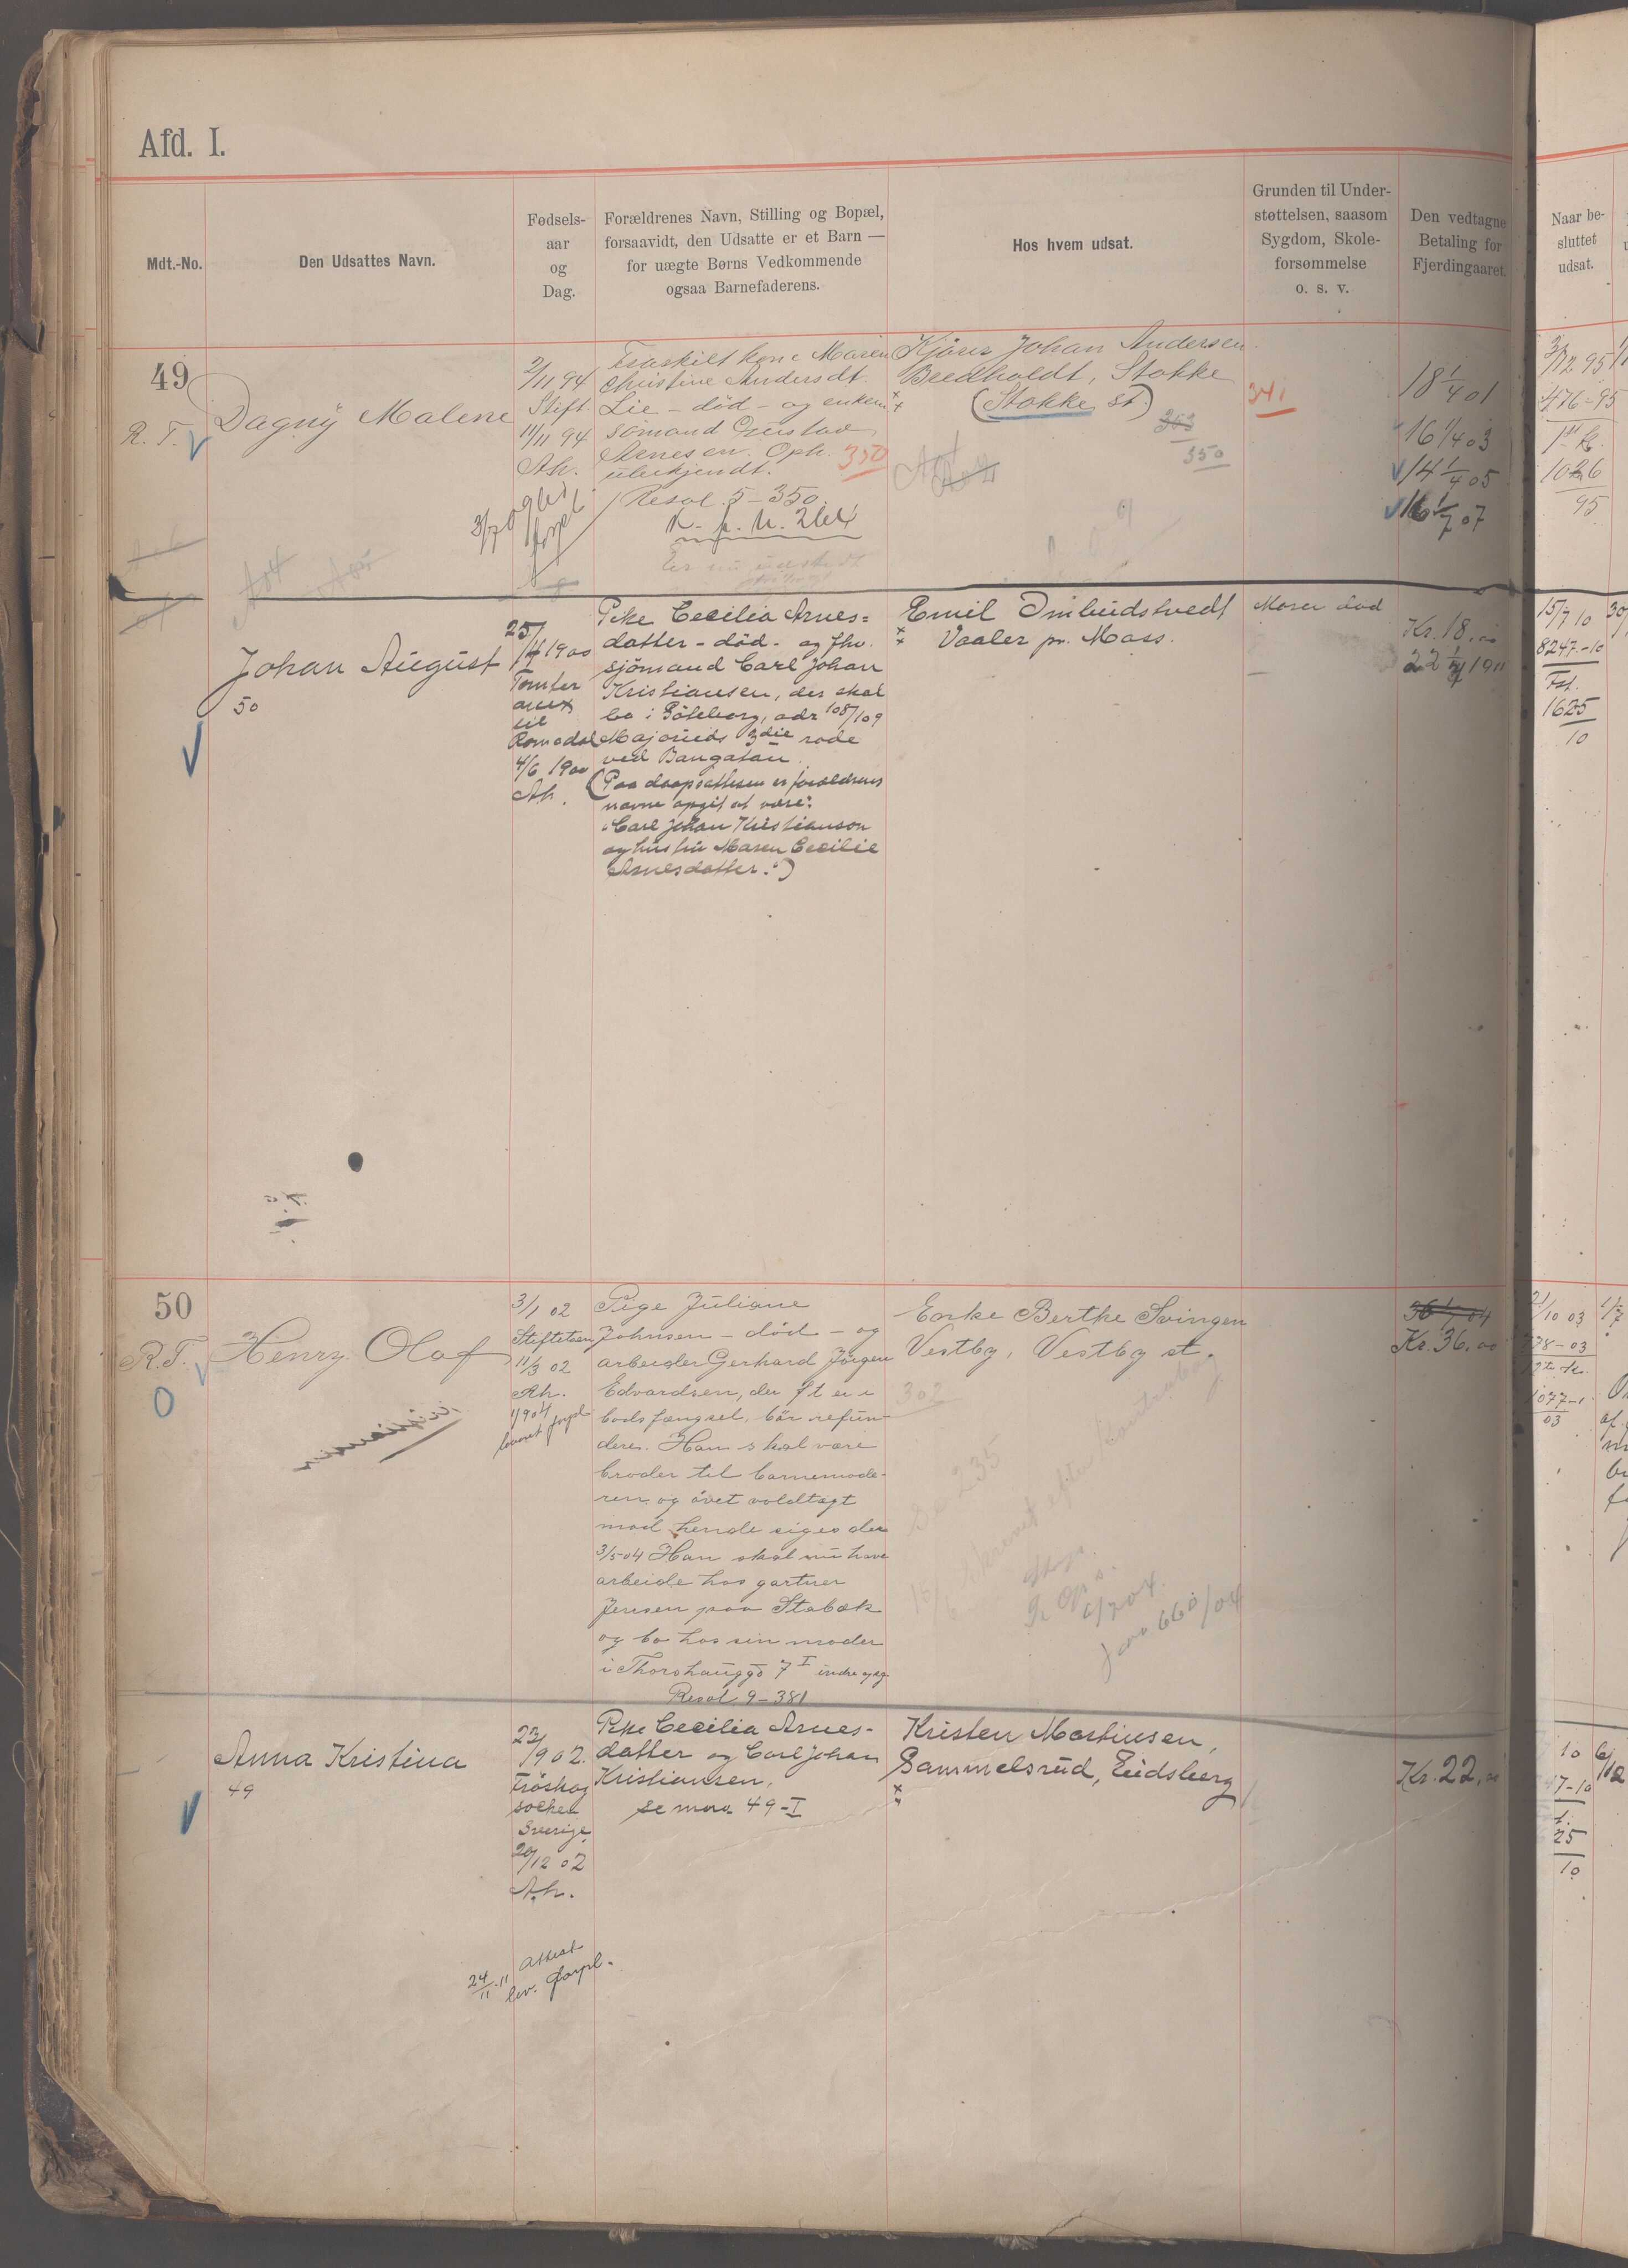 Afd. I.
Mdt.-No.
Den Udsattes Navn.
Fødsels-
aar
og
Dag.
Forældrenes Navn, Stilling og Bopæl,
forsaavidt, den Udsatte er et Barn —
for uægte Børns Vedkommende
ogsaa Barnefaderens.
Hos hvem udsat.
Grunden til Under-
støttelsen, saasom
Sygdom, Skole-
forsømmelse
o. s. v.
Den vedtagne
Betaling for
Fjerdingaaret.
Naar be-
sluttet
udsat.
49
R. T.
Dagny Malene
2/11 94
Stift.
11/11 94
Ah.
Fraskilt kone Maren
Christine Andersdt.
Lie – død – og enkem.
sømand Gustav
Arnesen. Oph.
ubekjendt. 350
Resol. 5–350
Kjører Johan Andersen
Bredholdt, Stokke
(Stokke st.)
303
350
341
18 1/4 01
16 1/4 03
14 1/4 05
16 1/7 07
3/12 95
476–95
1026
95
Johan August
50
25/
1900
Tomter
anex
til
Romedal
4/6 1900
Ah.
Pike Cecilia Arnes=
datter – død – og fhv.
sjømand Carl Johan
Kristiansen, der skal
bo i Göteborg, adr 108/109
Majorneds 3die rode
ved Bangatan.
(Paa daapsattesten er forældrenes
navne opgit at være:
"Carl Johan Kristianson
og hustru Maren Cecilie
Arnesdatter.")
Emil Ombudstvedt
Vaaler pr. Moss.
Moren død
Kr. 18.00
22 1/4 1911
15/7 10
8247–10
Fst.
1625
10
50
R. T.
Henry Olaf
3/1 02
Stiftelsen
11/3 02
Ah.
Pige Juliane
Johnsen – død – og
arbeider Gerhard Jörgen
Edvardsen, der ft er i
bods fængsel, bör refun-
dere. Han skal være
broder til barnemode-
ren og øvet voldtægt
mod hende siges der
3/5 04 Han skal nu have
arbeide hos gartner
Jensen paa Stabæk
og bo hos sin moder
i Thorshauggd 7 I indre opg.
Resol. 9–381
Enke Berthe Svingen
Vestby, Vestby st.
302
Se 235
36 1/1 04
Kr. 36.00
/10 03
38–03
1077–1
03
Anna Kristina
49
23/
/9 02.
Fröskog
socken
Sverige
20/12 02
Ah.
24/11-11 attest
lev. forpl.
Pike Cecilia Arnes-
datter og Carl Johan
Kristiansen,
se mdn 49–I
Kristen Martinsen,
Gammelsrud, Eidsberg
Kr. 22.00
10
47–10
25
10